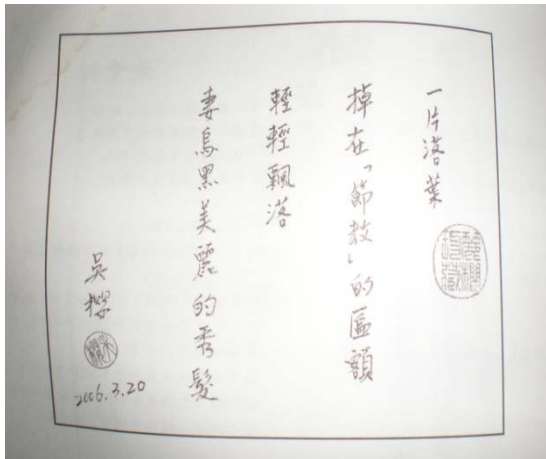 一片落葉
掉在「節教」的匾額
輕輕飄落
妻烏黑美麗的秀髮
吳櫻
2006.3.20